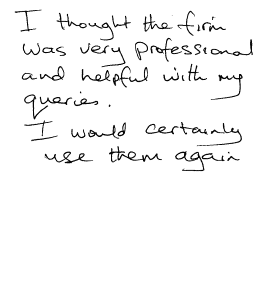 I thought the firm
was very professional
and helpful with my
queries.
I would certainly
use them again